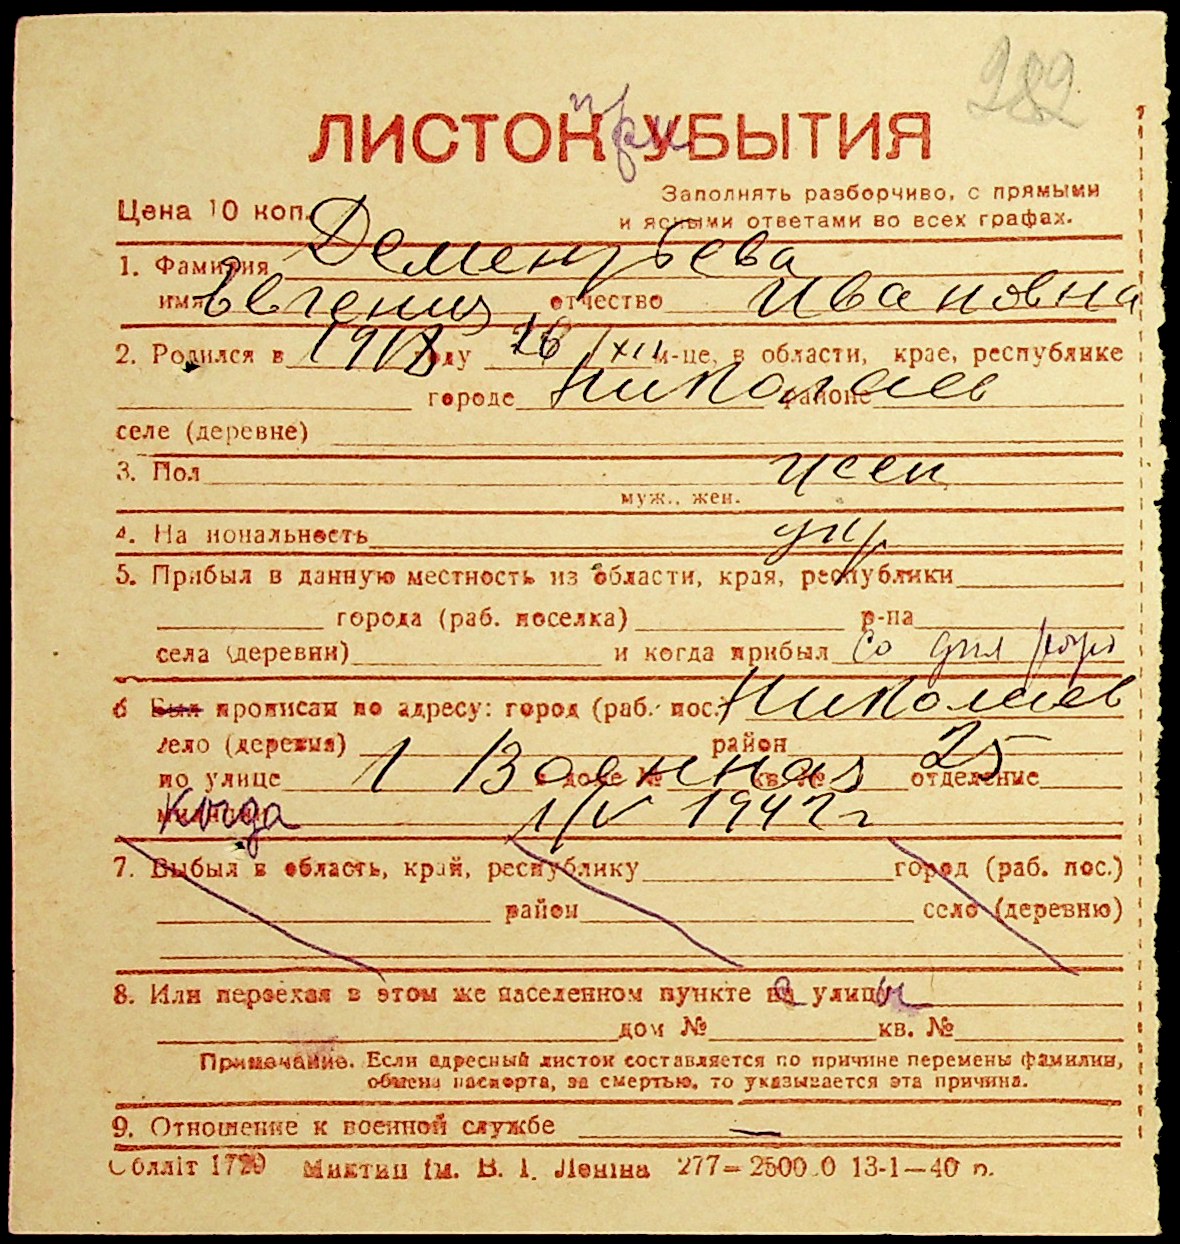 282
ЛИСТОК при УБЫТИЯ
Заполнять разборчиво, с прямыми
Цена 10 коп.
и ясными ответами во всех графах.
1. Фамилия Дементьева
имя Евгения отчество Ивановна
2. Родился в 1918 году 26/XII м-це, в области, крае, республике
городе Николаев районе
селе (деревне)
3. Пол жен
муж., жен.
4. Национальность укр
5. Прибыл в данную местность из области, края, республики
города (раб. поселка) р-на
села (деревни) и когда прибыл со дня рожд
6 Был прописан по адресу: город (раб. пос.) Николаев
село (деревня) район
по улице 1 Военная в доме № кв. № 25 отделение
милиции Когда 1/V 1942 г
7. Выбыл в область, край, республику город (раб. пос.)
район село (деревню)
8. Или переехал в этом же населенном пункте на с улицу ы
дом № кв. №
Примечание. Если адресный листок составляется по причине перемены фамилии,
обмена паспорта, за смертью, то указывается эта причина.
9. Отношение к военной службе —
Облліт 1720 Миктип ім. В. І. Леніна 277—2500.0 13-1—40 р.